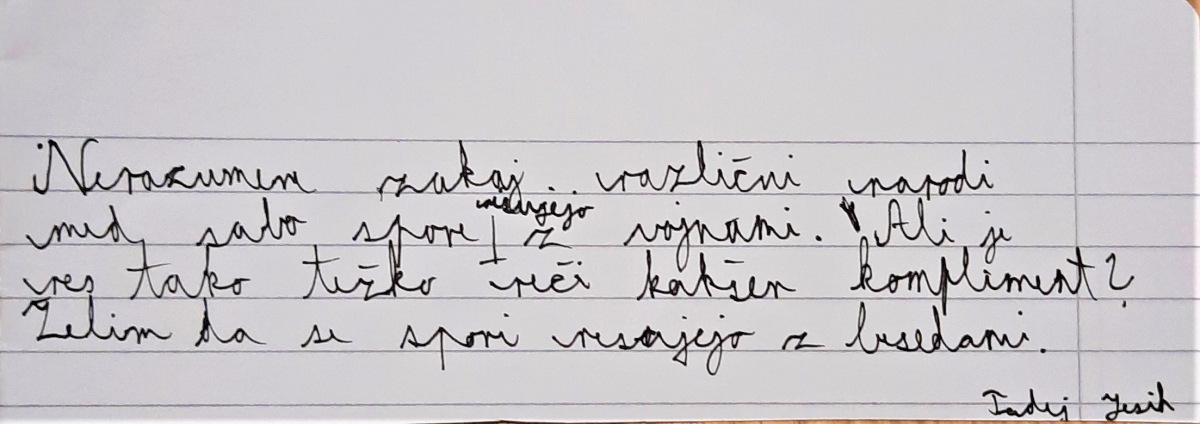 Nerazumem zakaj različni narodi
med sabo spore rešujejo z vojnami. Ali je
res tako težko reči kakšen kompliment?
Želim da se spori rešujejo z besedami.
Tadej Jesih